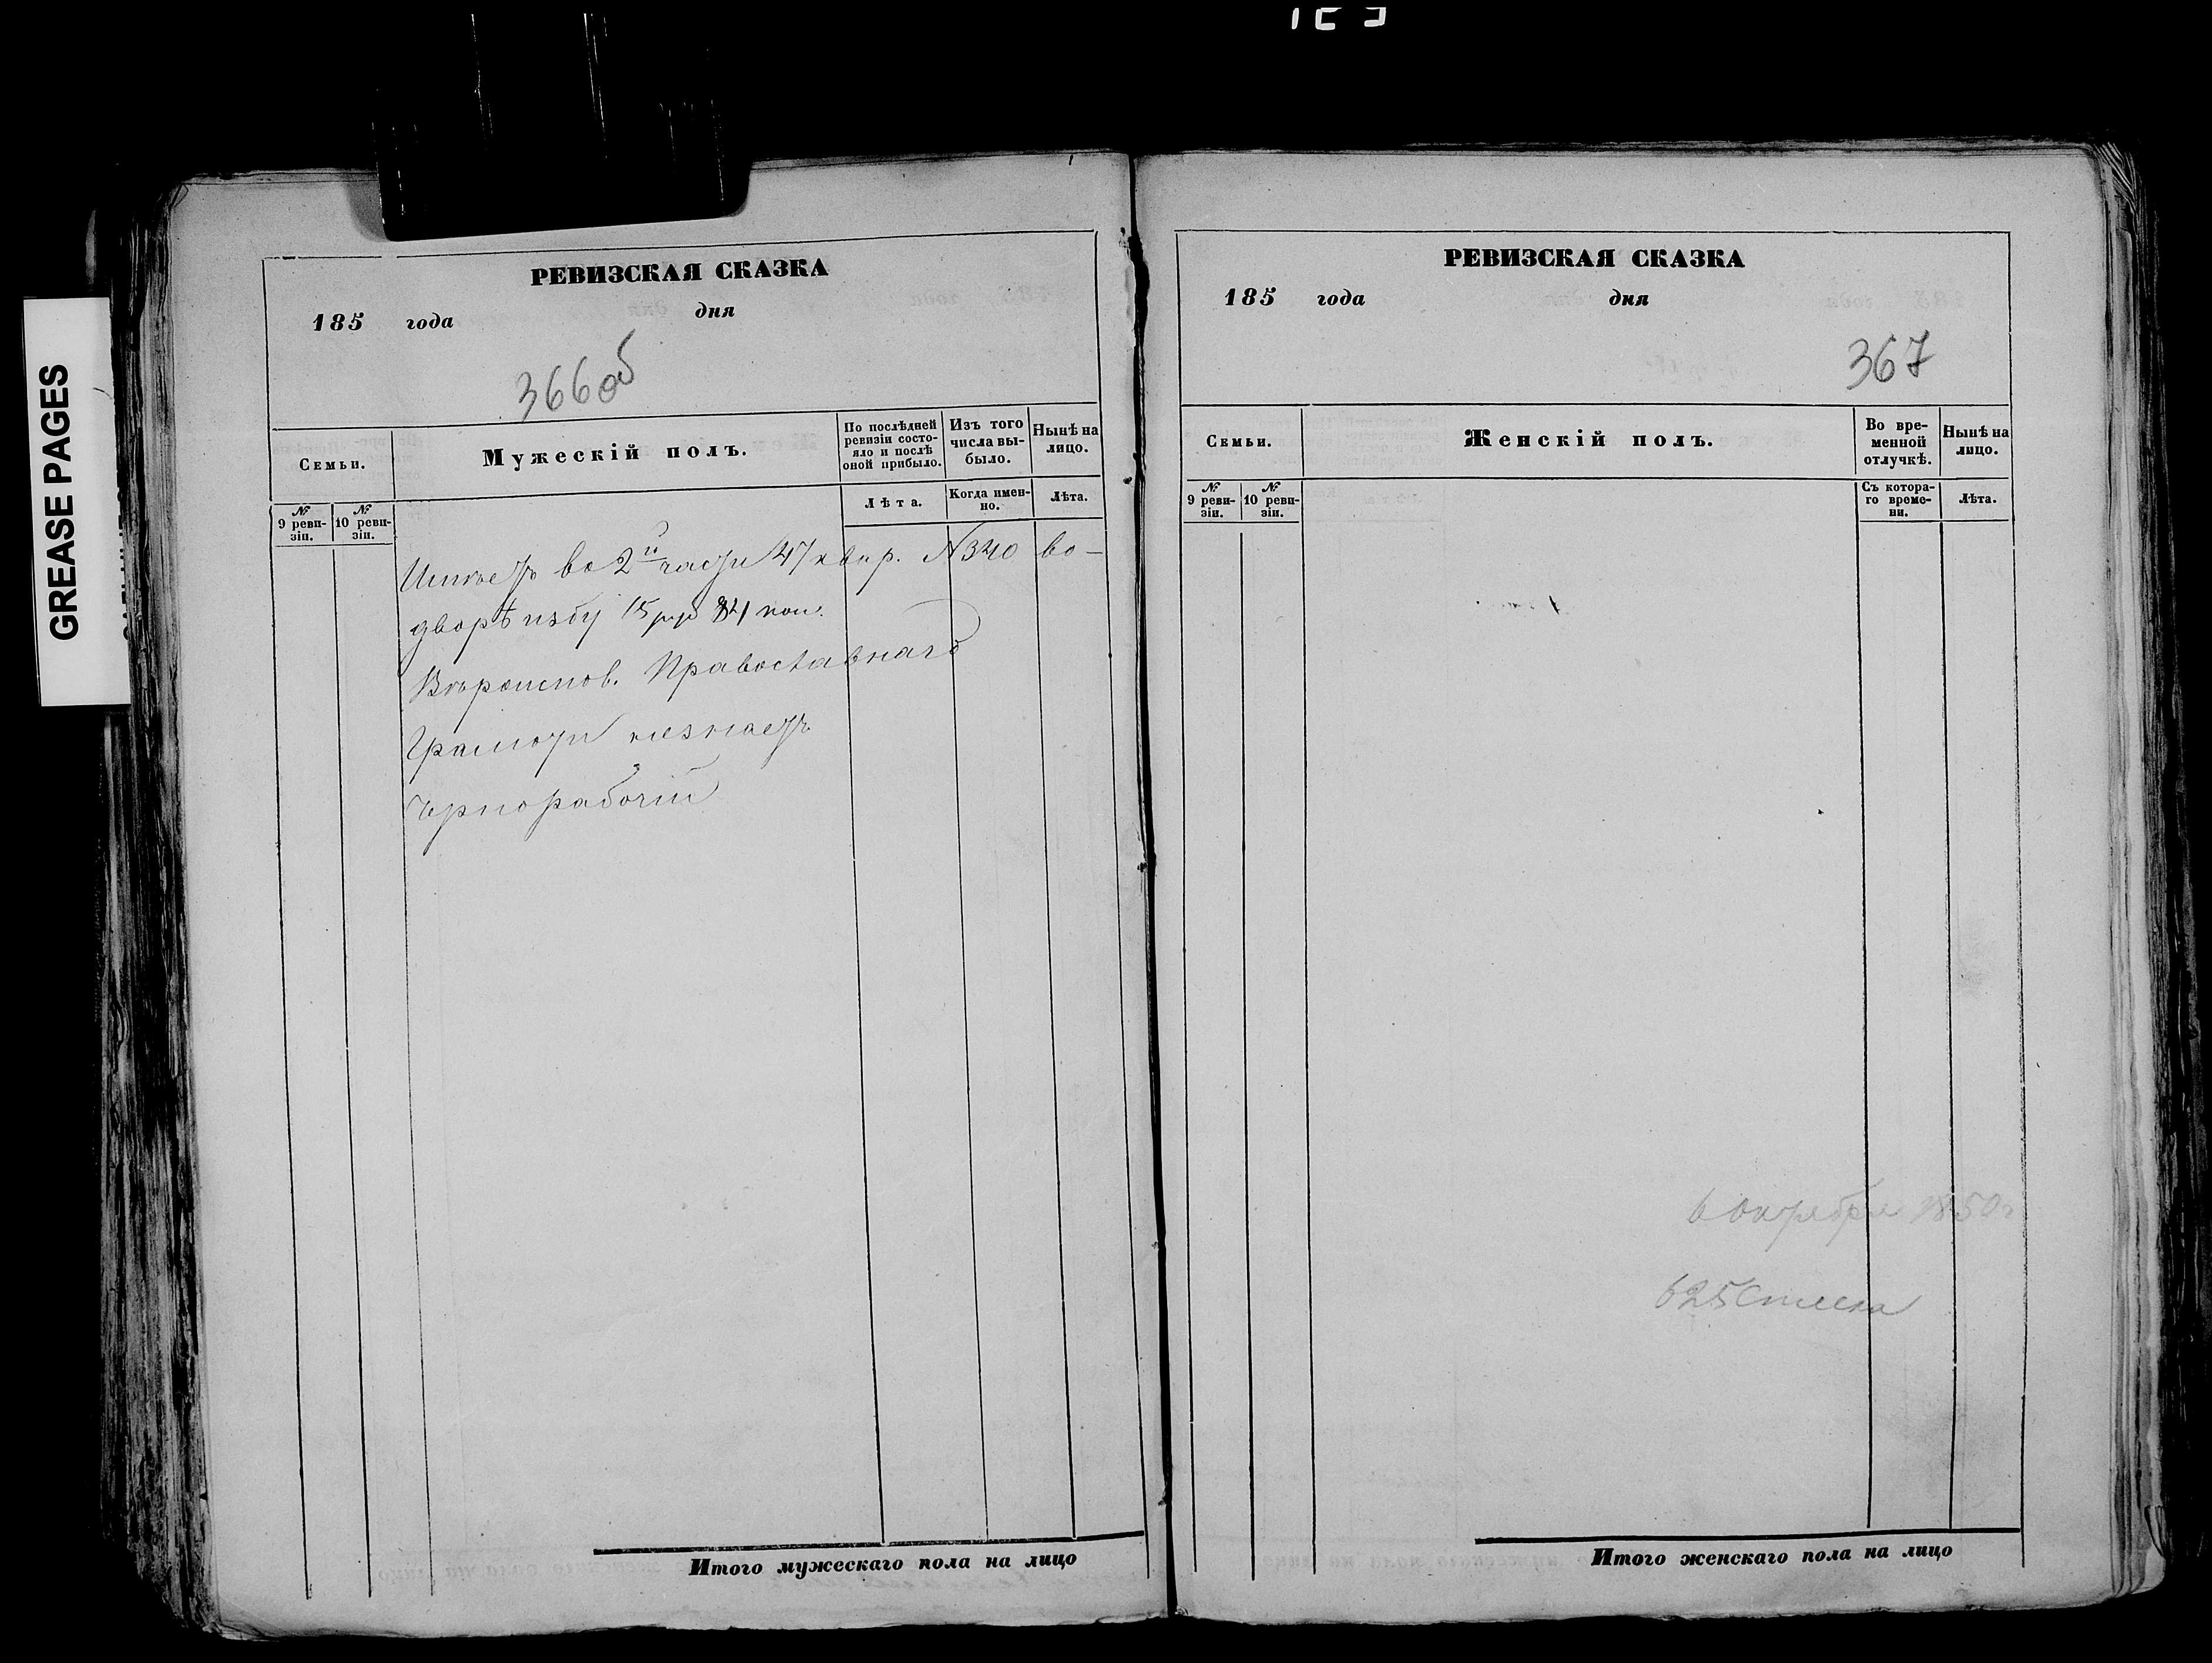 GREASE PAGES
РЕВИЗСКАЯ СКАЗКА
185 года дня
366 об
Семьи.
Мужескій полъ.
По послѣдней ревизіи состояло и послѣ оной прибыло.
Изъ того числа выбыло.
Нынѣ на лицо.
№ 9 ревизіи.
№ 10 ревизіи.
Лѣта.
Когда именно.
Лѣта.
Имѣетъ во 2й части 47 квар. N 340 во-
дворѣ избу 15 руб 84 коп.
Вѣроиспов. Православнаго
Грамоти незнаетъ
Чернорабочій
Итого мужескаго пола на лицо
РЕВИЗСКАЯ СКАЗКА
185 года дня
367
Семьи.
Женскій полъ.
Во временной отлучкѣ.
Нынѣ на лицо.
№ 9 ревизіи.
№ 10 ревизіи.
Съ котораго времени.
Лѣта.
6 Октября 1850 г
625
Итого женскаго пола на лицо